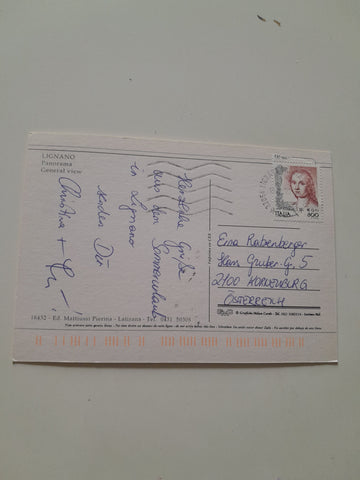 LIGNANO
Panorama
General view
Herzliche Grüße
aus dem Sommerurlaub
in Lignano
senden Dir
Christina +
ITALIA 800
Erna Rabenberger
Hans Gruber G. 5
2100 KORNEUBURG
ÖSTERREICH
18432 - Ed. Mattiussi Pierina - Latisana - Tel. 0431 50305